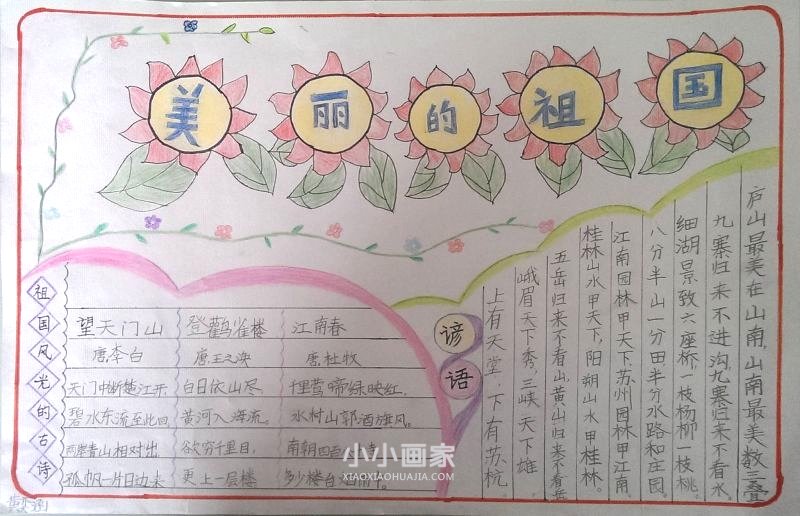 美丽的祖国
祖国风光的古诗
望天门山
唐.李白
天门中断楚江开,
碧水东流至此回
两岸青山相对出
孤帆一片日边来
登鹳雀楼
唐.王之涣
白日依山尽
黄河入海流。
欲穷千里目,
更上一层楼
江南春
唐.杜牧
千里莺啼绿映红,
水村山郭酒旗风。
南朝四百
多少楼台烟雨中。
谚语
庐山最美在山南,山南最美数三叠
九寨归来不进沟,九寨归来不看水。
细湖景致六座桥,一枝杨柳一枝桃。
八分半山一分田,半分水路和庄园。
江南园林甲天下,苏州园林甲江南。
桂林山水甲天下,阳朔山水甲桂林。
五岳归来不看山,黄山归来不看岳
峨眉天下秀,三峡天下雄
上有天堂,下有苏杭。
小小画家
XIAOXIAOHUAJIA.COM